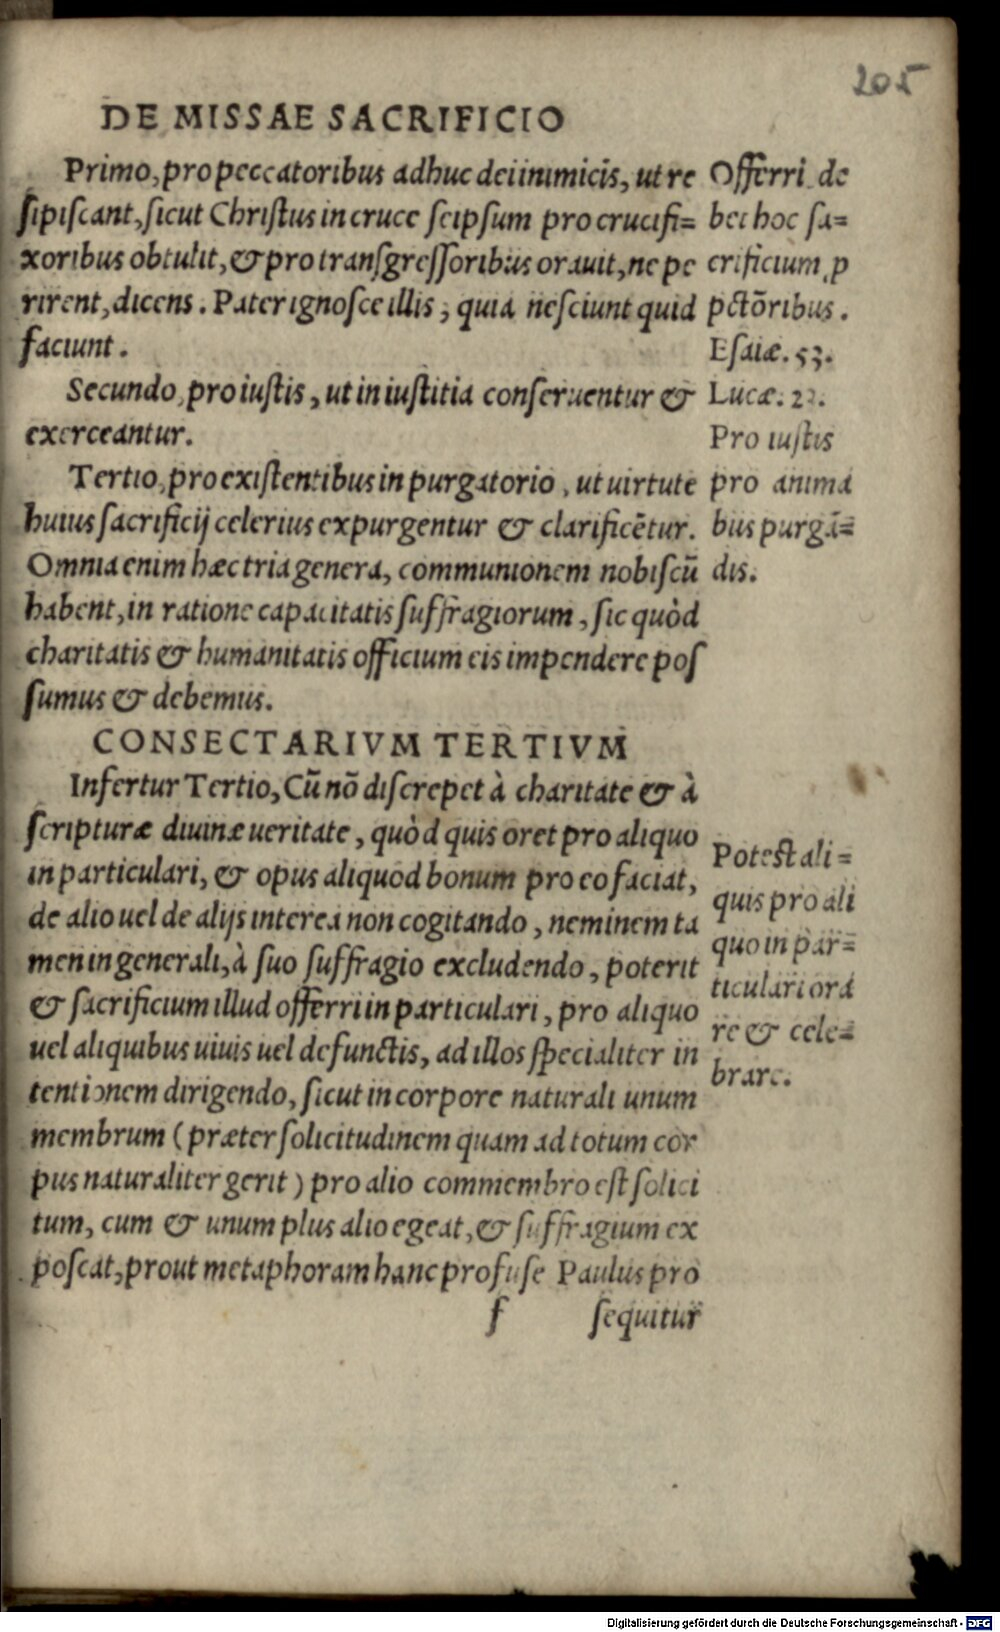 205
DE MISSAE SACRIFICIO
Primo, pro peccatoribus adhuc dei inimicis, ut re
sipiscant, sicut Christus in cruce seipsum pro crucifi=
xoribus obtulit, & pro transgressoribus orauit, ne pe
rirent, dicens. Pater ignosce illis, quia nesciunt quid
faciunt.
Secundo, pro iustis, ut in iustitia conseruentur &
exerceantur.
Tertio, pro existentibus in purgatorio, ut uirtute
huius sacrificij celerius expurgentur & clarificẽtur.
Omnia enim hæc tria genera, communionem nobiscũ
habent, in ratione capacitatis suffragiorum, sic quòd
charitatis & humanitatis officium eis impendere pos
sumus & debemus.
Offerri de
bet hoc sa=
crificium ꝓ
pctõribus.
Esaiæ. 53.
Lucæ. 23.
Pro iustis
pro anima
bus purgã=
dis.
CONSECTARIVM TERTIVM
Infertur Tertio, Cũ nõ discrepet à charitate & à
scripturæ diuinæ ueritate, quòd quis oret pro aliquo
in particulari, & opus aliquod bonum pro eo faciat,
de alio uel de alijs interea non cogitando, neminem ta
men in generali, à suo suffragio excludendo, poterit
& sacrificium illud offerri in particulari, pro aliquo
uel aliquibus uiuis uel defunctis, ad illos specialiter in
tentionem dirigendo, sicut in corpore naturali unum
membrum (præter solicitudinem quam ad totum cor
pus naturaliter gerit) pro alio commembro est solici
tum, cum & unum plus alio egeat, & suffragium ex
poscat, prout metaphoram hanc profuse Paulus pro
Potest ali=
quis pro ali
quo in par=
ticulari ora
re & cele=
brare.
f sequitur
Digitalisierung gefördert durch die Deutsche Forschungsgemeinschaft - DFG